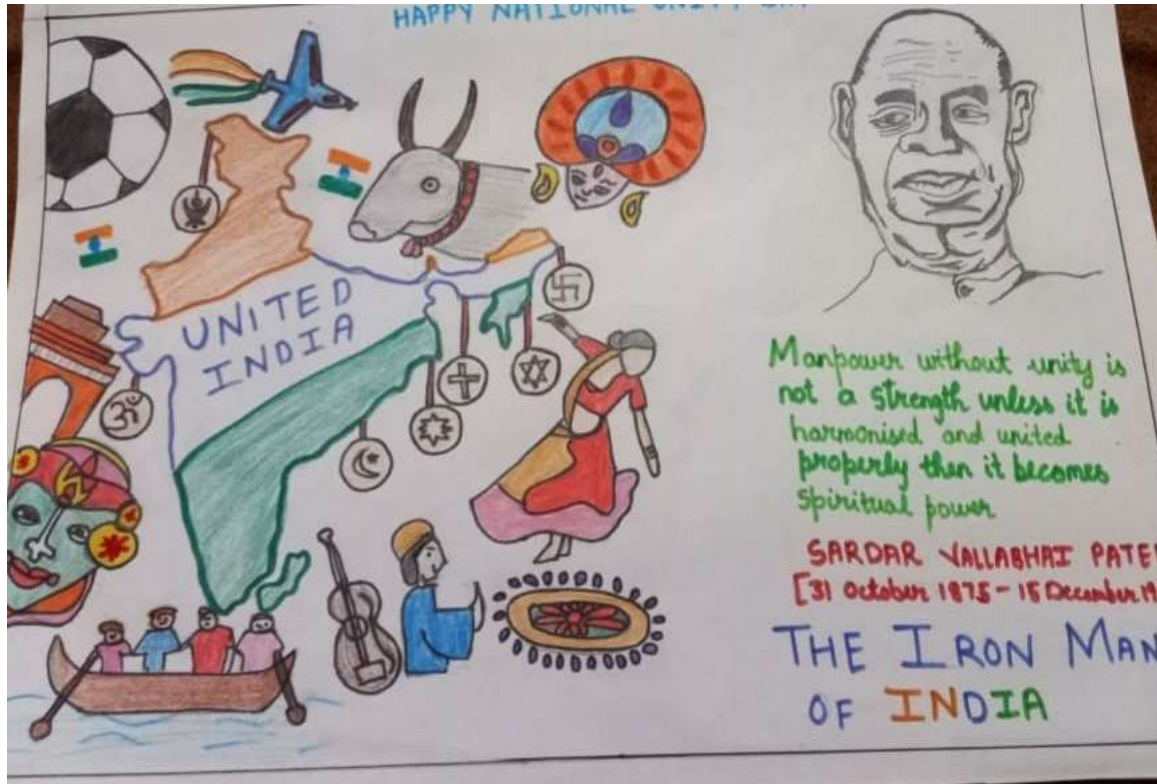 HAPPY NATIONAL UNITY DAY
UNITED
INDIA
Manpower without unity is
not a strength unless it is
harmonised and united
properly then it becomes
spiritual power
SARDAR VALLABHAI PATE
[31 October 1875 - 15 December 19
THE IRON MAN
OF INDIA